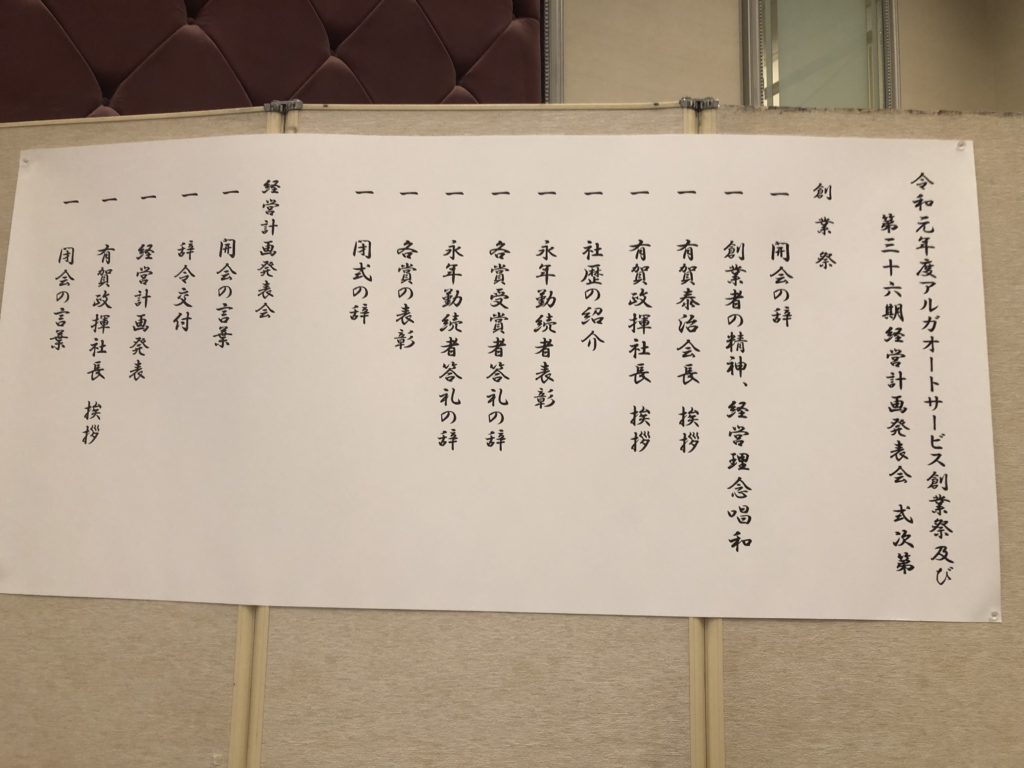 令和元年度アルガオートサービス創業祭及び
第三十六期経営計画発表会 式次第
創業祭
一 開会の辞
一 創業者の精神、経営理念唱和
一 有賀泰治会長 挨拶
一 有賀政揮社長 挨拶
一 社歴の紹介
一 永年勤続者表彰
一 各賞受賞者答礼の辞
一 永年勤続者答礼の辞
一 各賞の表彰
一 閉式の辞
経営計画発表会
一 開会の言葉
一 辞令交付
一 経営計画発表
一 有賀政揮社長 挨拶
一 閉会の言葉